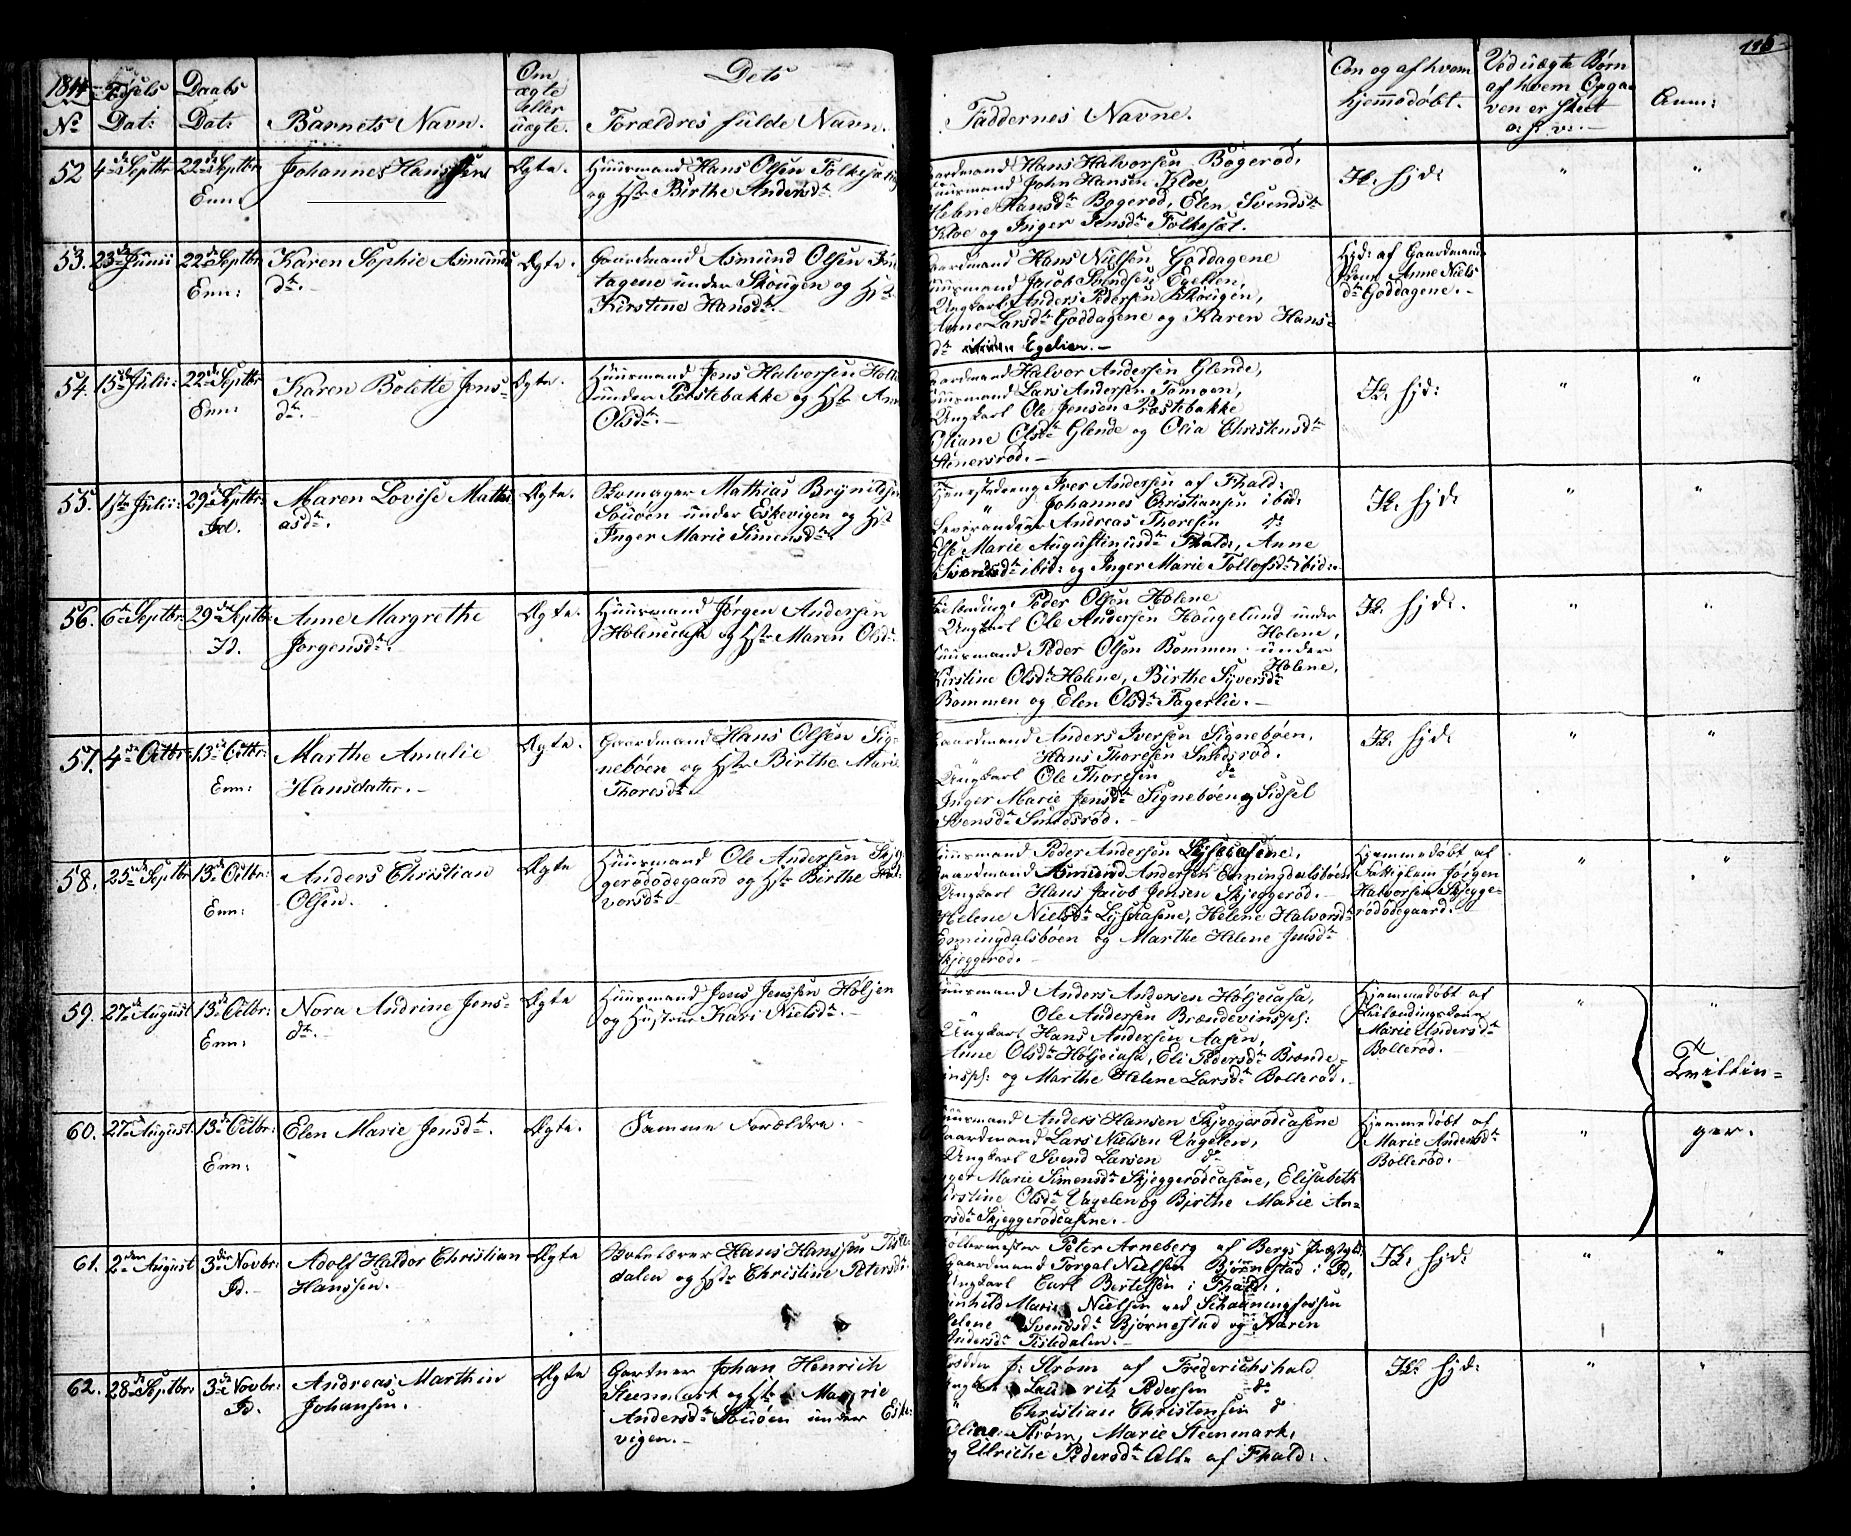 186
1844
Fødsels Dat:
Daabs Dat:
Barnets Navn.
Om ægte eller uægte.
Dets Forældres fulde Navn.
Faddernes Navne.
Om og af hvem hjemmedøbt.
Ved uægte Børn af hvem Opga-
ven er skeet
Anm:
No
52 4de Septbr 22de Septbr Enn: Johannes Hanssen Ægte.
Huusmand Hans Olsen Folkesat
og Hstr Birthe Andersdtr
Hans Halvorsen Bøgerød,
John Hansen Kloe,
Helene Hansdtr Bøgerød, Elen Svendsdtr
Kloe og Inger Jensdtr Folkesat.
Ik. hjd:
53. 23de Junii 22de Septbr Enn: Karen Sophie Asmunds
dtr.
Ægte.
Gaardmand Asmund Olsen
tagene under Skougen og Hstr
Kirstine Hansdtr.
Hans Nielsen Goddagene
Jacob Svendsen Egelien,
Ungkarl Anders Pedersen Skovigen,
Anne Larsdtr Goddagene og Karen Hans-
dtr Egelien.
Hjd: af Gaardmands
Kone Anne Niels
dtr Goddagene.
54. 15de Julii: 22de Septbr Enn: Karen Bolette Jens-
dtr.
Ægte.
Huusmand Jens Halvorsen
under Præstebakke og Hstr Anne
Olsdtr.
Halvor Andersen Glende,
Lars Andersen Tomoen,
Ungkarl Ole Jensen Præstebakke
Oliane Olsdtr Glende og Olia Christensdtr
Stenersrød.
Ik. hjd:
55. 1ste Julii: 29de Septbr: Id. Maren Lovise Mathi
asdtr.
Ægte.
Skomager Mathias Brynildsen
Souøen under Eskevigen og Hstr
Inger Marie Simensdtr
Iver Andersen af Fhald:
Johannes Christiansen ibid:
Andreas Thoresen do
Else Marie Augustinusdtr Fhald:, Anne
Svendsdtr ibid: og Inger Marie Tollofsdtr ibid:
Ik. hjd:
56. 6te Septbr: 29de Septbr: Id. Anne Margrethe
Jørgensdtr.
Ægte.
Huusmand Jørgen Andersen
Holenecasa og Hstr Maren Olsdtr
Peder Olsen Holene
Ungkarl Ole Andersen Hougelund under
Holene,
Huusmand Peder Olsen Bommen under
Holene,
Kirstine Olsdtr Holene, Birthe Syversdtr
Bommen og Elen Olsdtr Fagerlie.
Ik. hjd:
57. 4de Octbr: 13de Octbr: Enn: Marthe Amalie
Hansdatter.
Ægte.
Gaardmand Hans Olsen Sig-
nebøen og Hstr Birthe Marie
Thoresdtr
Gaardmand Anders Iversen Signebøen,
" Hans Thoresen Smedsrød.
Ungkarl Ole Thoresen do
Inger Marie Jensdtr Signebøen og Sidsel
Svensdtr Smedsrød.
Ik. hjd:
58. 25de Septbr 13de Octbr: Enn: Anders Christian
Olsen.
Ægte
Huusmand Ole Andersen Skjeg-
gerødødegaard og Hstr Birthe Hal-
vorsdtr
Huusmand Peder Andersen Lyseasene,
Gaardmand Asmund Andersen Enningdalsbøen
Ungkarl Hans Jacob Jensen Skjeggerød.
Helene Nielsdtr Lyseasene, Helene Halvorsdtr
Enningdalsbøen og Marthe Helene Jensdtr
Skjeggerød.
Hjemmedøbt af
Fattiglem Jørgen
Halvorsen Skjegge-
rødødegaard.
59. 27de August 13de Octbr: Enn: Nora Andrine Jens-
dtr.
Ægte
Huusmand Jens Jenssen Høljen
og Hustrue Kari Nielsdtr.
Huusmand Anders Andersen Høljecasa,
" Ole Andersen Brændevinspl:
Ungkarl Hans Andersen Aasen,
Anne Olsdtr Høljecasa, Eli Pedersdtr Brænde-
vinspl: og Marthe Helene Larsdtr Bollerød.
Hjemmedøbt af
Marie Andersdtr
Bollerød.
Tvillin-
60. 27de August. 13de Octbr: Enn: Elen Marie Jensdtr.
Ægte.
Samme Forældre.
Huusmand Anders Hansen Skjeggerødcasene
Gaardmand Lars Nielsen Vagelen,
Ungkarl Svend Larsen do
Inger Marie Simensdtr Skjeggerødcasene, Elisabeth
Kirstine Olsdtr Vagelen og Birthe Marie An-
dersdtr Skjeggerødcasene.
Hjemmedøbt af
Marie Andersdtr
Bollerød.
ger.
61. 2den August 3die Novbr: Id. Adolf Haldor Christian
Hanssen.
Ægte
Hans Hanssen Tiste-
dalen og Hstr Christine Petersdtr
Peter Arneberg af Bergs Præstgld:
Gaardmand Torgal Nielsen Bjørnestad i Id,
Ungkarl Carl Bertelsen i Fhald:
Marie Nielsen ved Schanningfossen
Helene Svendsdtr Bjørnestad og Karen
Andersdtr Tistedalen.
Ik. hjd:
62. 28de Septbr: 3die Novbr: Id. Andreas Marthin
Johansen.
Ægte
Gartner Johan Henrich
Steenmark og Hstr Marie
Andersdtr Souøen under Eske-
vigen.
J: Strøm af Frederichshald
Lauritz Pedersen do
Christian Christensen d
Oline Strøm, Marie Steenmark,
og Ulriche Pedersdtr Alle af Fhald:
Ik. hjd: